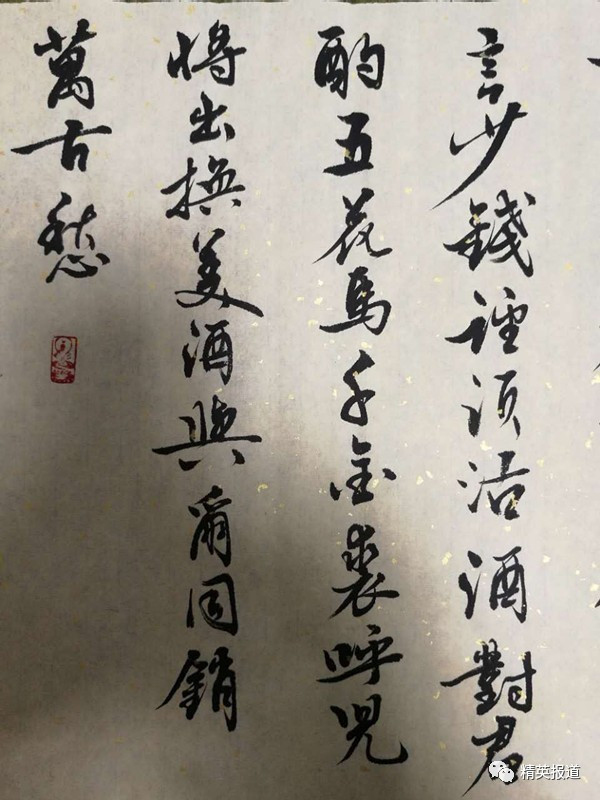 言少錢徑須沽酒對君
酌五花馬千金裘呼兒
將出換美酒與爾同銷
萬古愁
精英报道